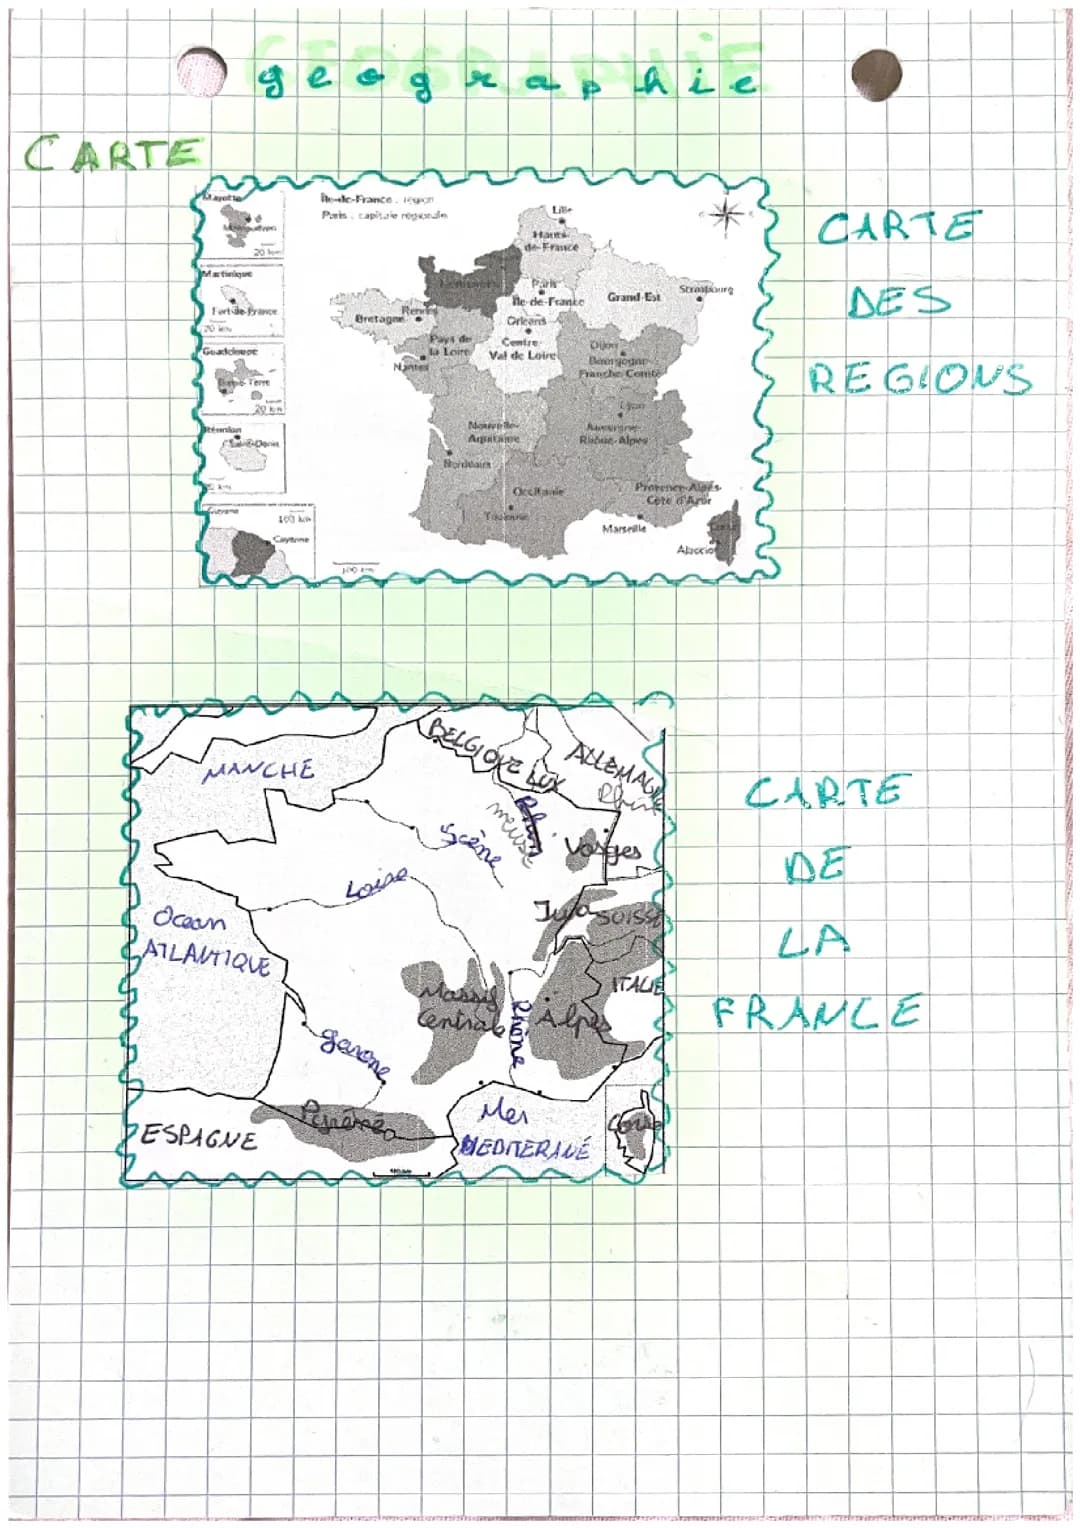 GEOGRAPHIE
geographie
CARTE
Mayotte
20 km
Martinique
Fort-de-France
20 km
Guadeloupe
Basse-Terre
20 km
Réunion
Saint-Denis
Guyane
100 km
Cayenne
Île-de-France : région
Paris : capitale régionale
Lille
Hauts-
de-France
Paris
Île-de-France
Grand-Est
Strasbourg
Bretagne
Rennes
Orléans
Centre-
Val de Loire
Pays de
la Loire
Nantes
Dijon
Bourgogne-
Franche-Comté
Lyon
Auvergne-
Rhône-Alpes
Nouvelle-
Aquitaine
Bordeaux
Occitanie
Toulouse
Provence-Alpes-
Côte d'Azur
Marseille
Corse
Ajaccio
100 km
CARTE
DES
REGIONS
MANCHE
BELGIQUE
LUX
ALLEMAGNE
Rhin
Rhin
meuse
Scène
Vosges
Loire
Jura
SUISSE
Ocean
ATLANTIQUE
ITALIE
Massif
Central
Rhône
Alpes
Garone
Pyréné
ESPAGNE
Mer
MEDITERANÉ
Corse
CARTE
DE
LA
FRANCE